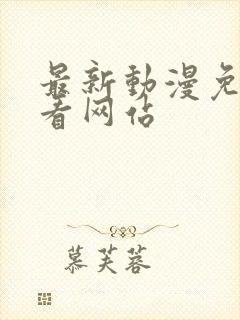 最新動漫免
看网站
慕芙蓉